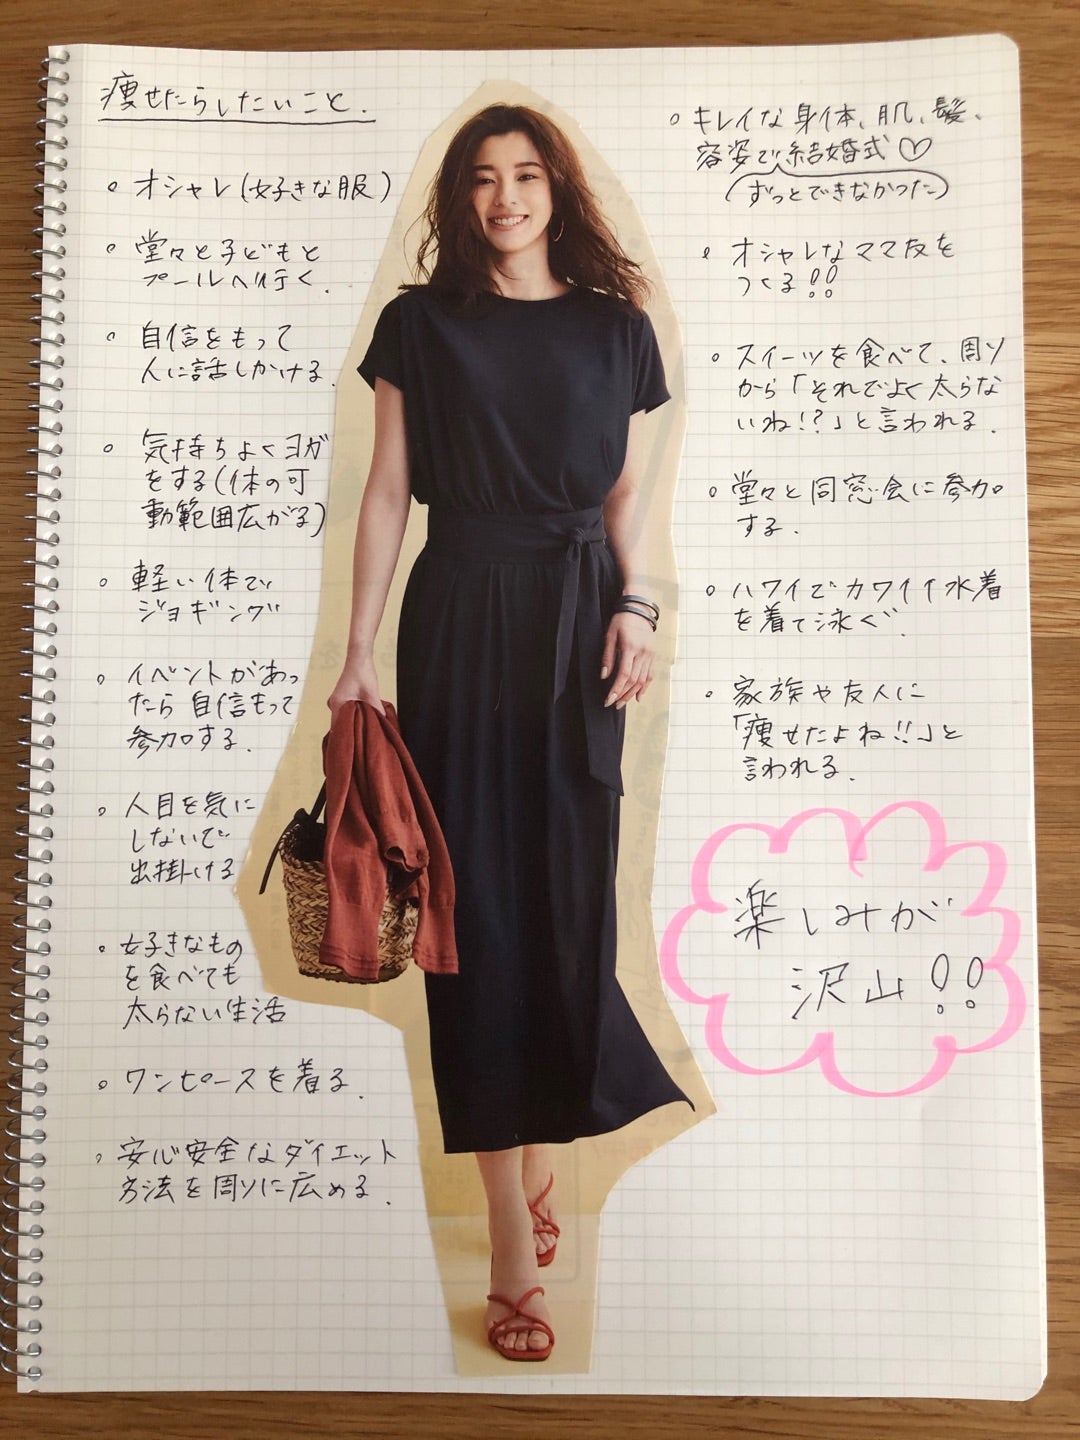 痩せたらしたいこと.
。オシャレ(好きな服)
。堂々と子どもと
プールへ行く.
。自信をもって
人に話しかける.
。気持ちよくヨガ
をする(体の可
動範囲広がる)
。軽い体で
ジョギング
。イベントがあっ
たら自信もって
参加する.
。人目を気に
しないで
出掛ける
。好きなもの
を食べても
太らない生活
。ワンピースを着る.
。安心安全なダイエット
方法を周りに広める.
。キレイな身体、肌、髪、
容姿で結婚式♡
(ずっとできなかった)
。オシャレなママ友を
つくる!!
。スイーツを食べて、周り
から「それでよく太らな
いね!?」と言われる.
。堂々と同窓会に参加
する.
。ハワイでカワイイ水着
を着て泳ぐ.
。家族や友人に
「痩せたよね!!」と
言われる.
楽しみが
沢山!!